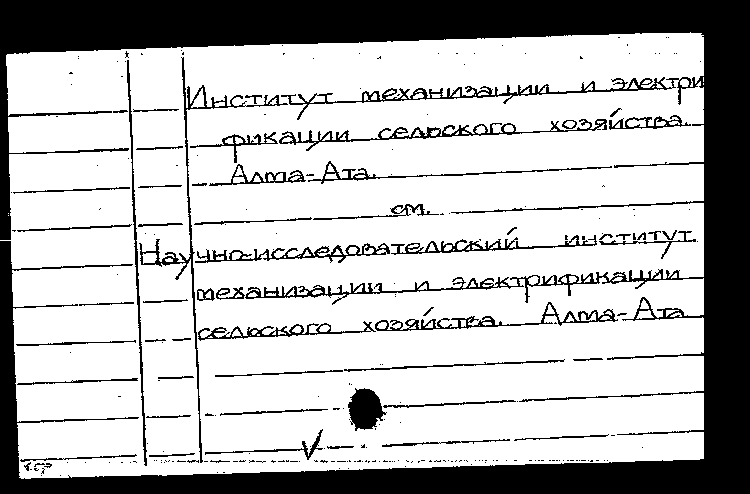 Институт механизации и электри
фикации сельского хозяйства.
Алма-Ата.
см.
Научно-исследовательский институт
механизации и электрификации
сельского хозяйства. Алма-Ата